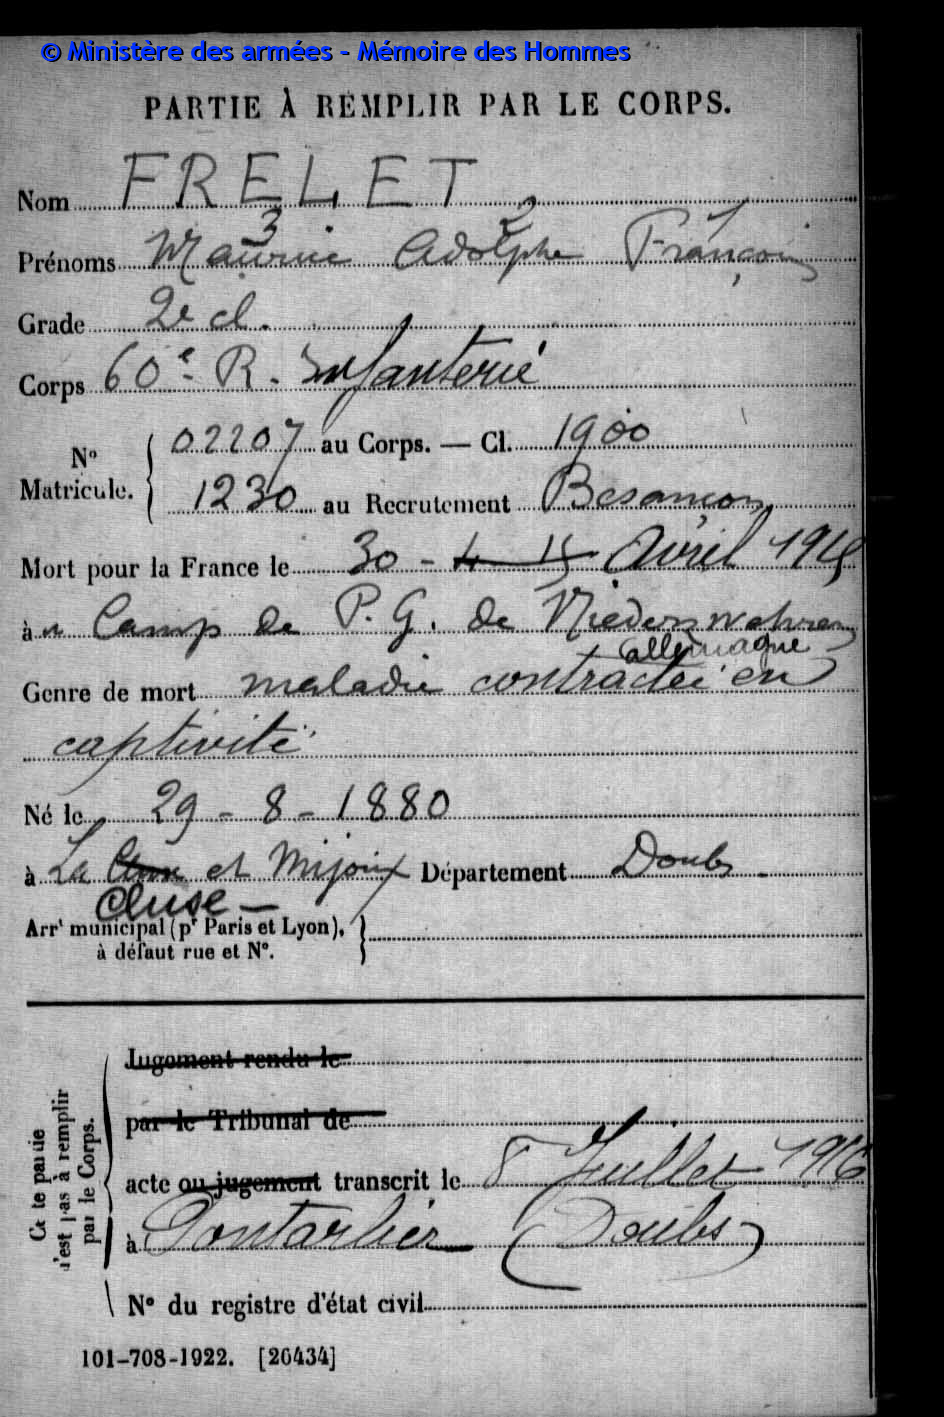 © Ministère des armées - Mémoire des Hommes
PARTIE À REMPLIR PAR LE CORPS.
Nom FRELET
3 2 1
Prénoms Maurice Adolphe François
Grade 2e cl.
Corps 60e R. Infanterie
N° Matricule. { 02207 au Corps. — Cl. 1900
1230 au Recrutement Besançon
Mort pour la France le 30 - 4 15 Avril 1915
à u Camp de P. G. de Niederzwehren
allemagne
Genre de mort maladie contractée en
captivité
Né le 29 - 8 - 1880
à La et Mijoux Département Doubs
Cluse
Arrt municipal (pr Paris et Lyon), à défaut rue et N°. }
Cette partie n'est pas à remplir par le Corps.
Jugement rendu le
par le Tribunal de
acte ou jugement transcrit le 8 Juillet 1916
à Pontarlier (Doubs)
N° du registre d'état civil
101-708-1922. [26434]